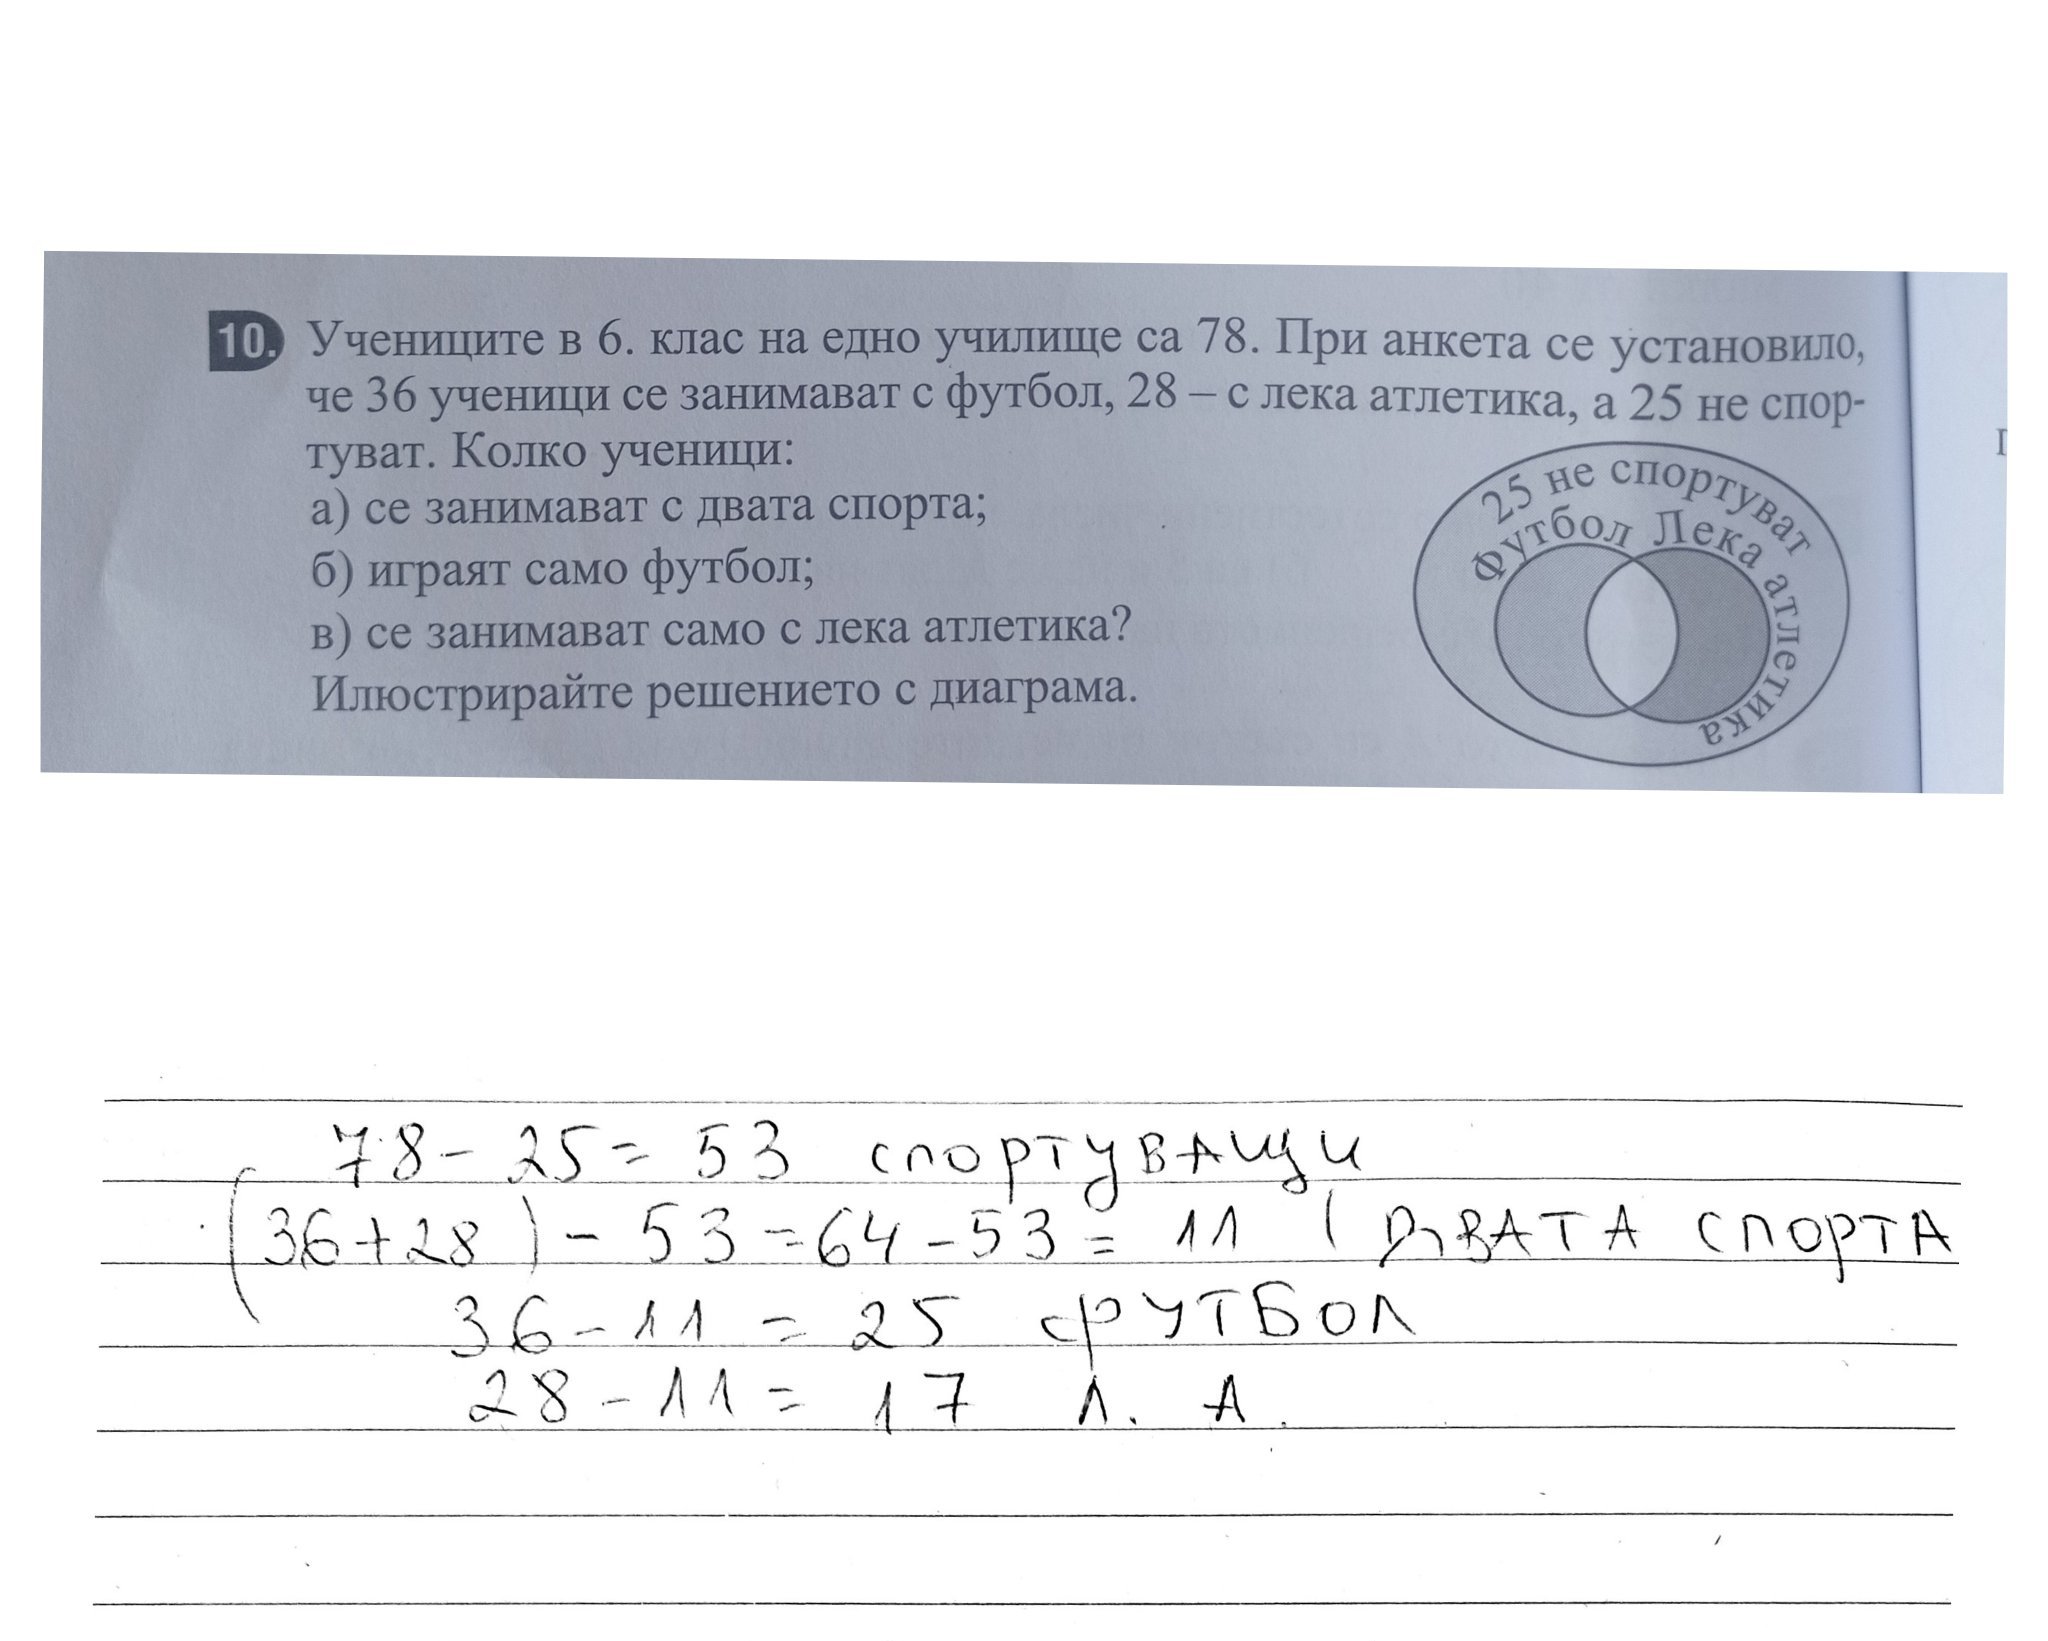 10. Учениците в 6. клас на едно училище са 78. При анкета се установило,
че 36 ученици се занимават с футбол, 28 – с лека атлетика, а 25 не спор-
туват. Колко ученици:
а) се занимават с двата спорта;
б) играят само футбол;
в) се занимават само с лека атлетика?
Илюстрирайте решението с диаграма.
25 не спортуват
Футбол Лека атлетика
78 - 25 = 53 спортуващи
(36+28) - 53 = 64 - 53 = 11 ( ДВАТА СПОРТА
36 - 11 = 25 ФУТБОЛ
28 - 11 = 17 Л. А.